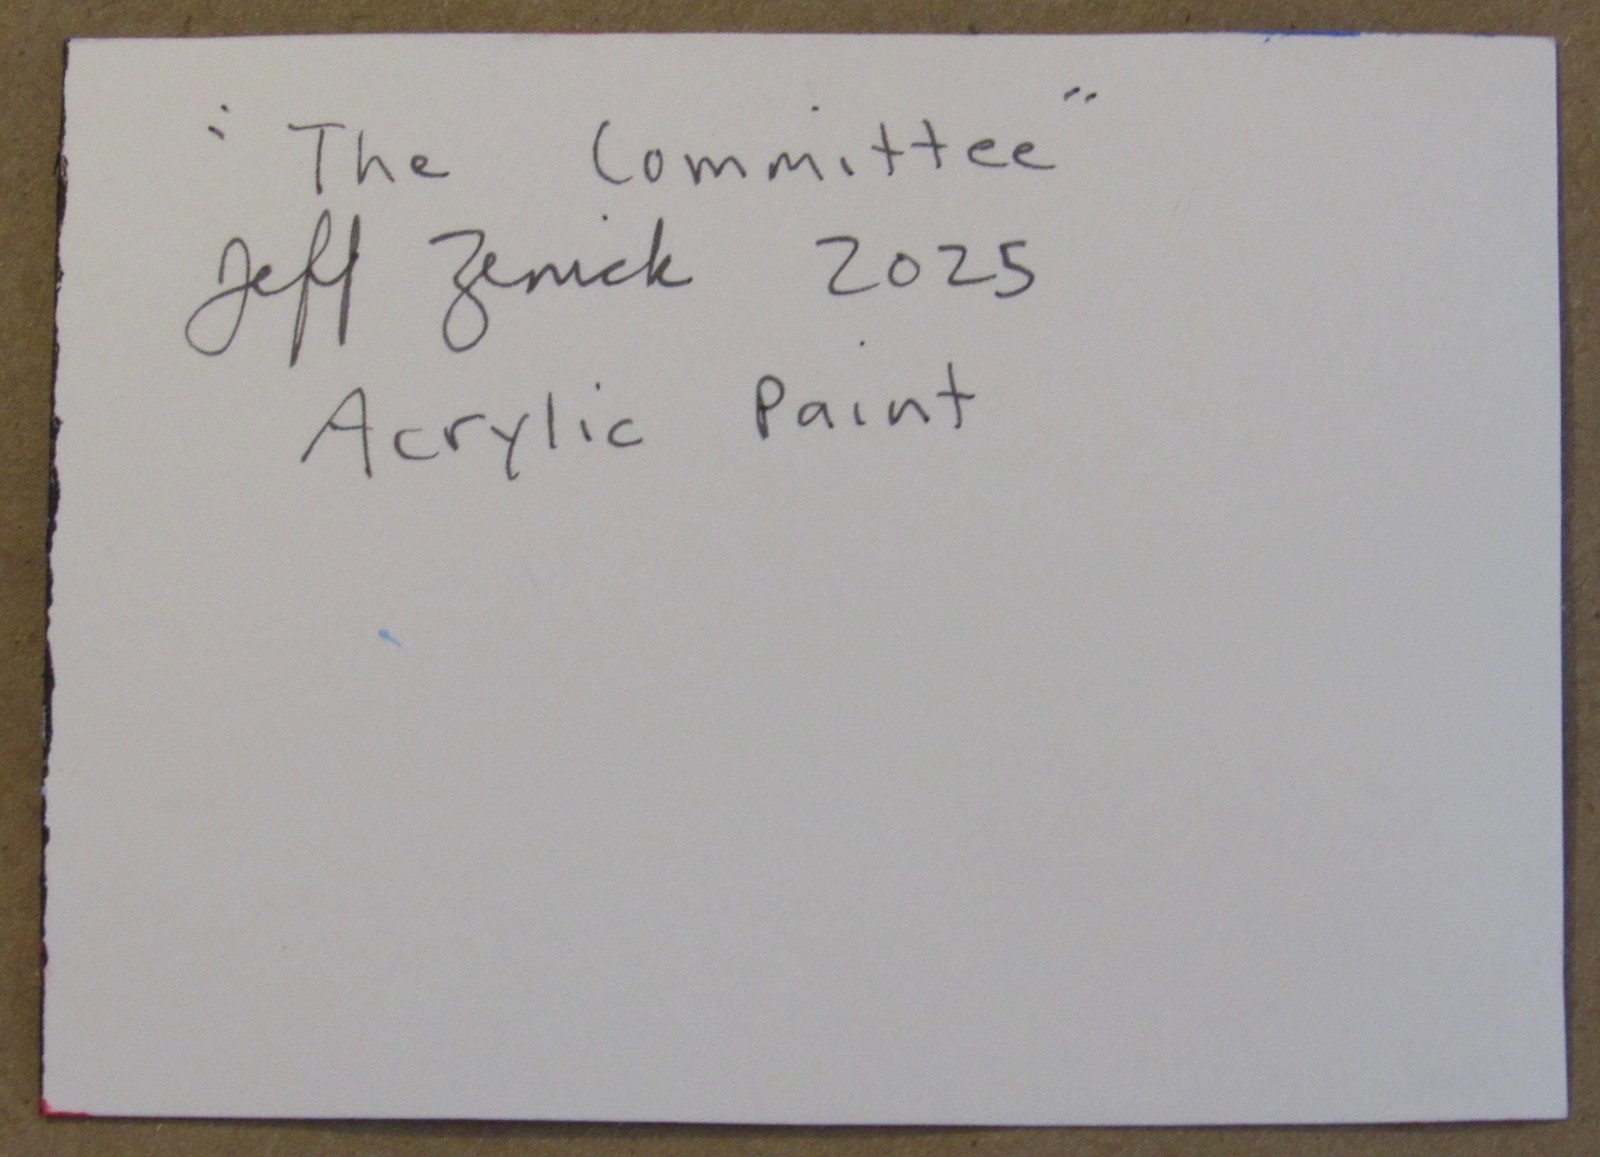 "The Committee"
Jeff Zenick 2025
Acrylic Paint